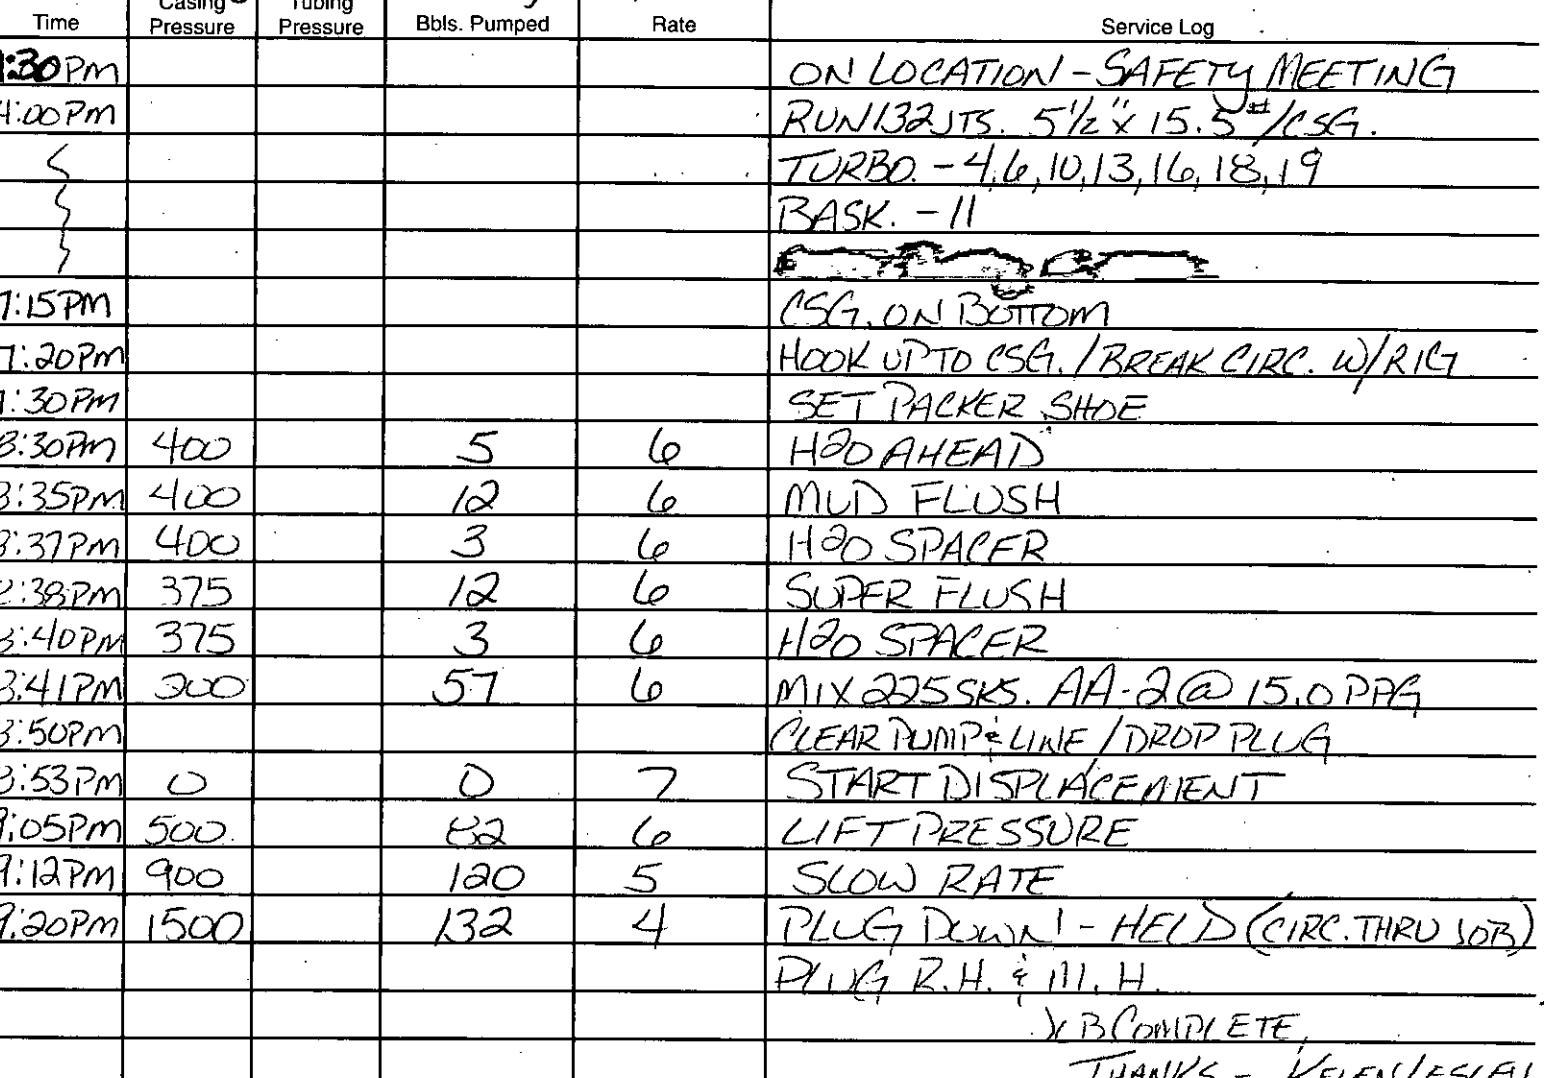 Casing Tubing
Time Pressure Pressure Bbls. Pumped Rate Service Log
:30PM ON LOCATION - SAFETY MEETING
4:00PM RUN 132 JTS. 5 1/2" X 15.5 #/CSG.
TURBO. - 4,6,10,13,16,18,19
BASK. - 11
7:15PM CSG. ON BOTTOM
7:20PM HOOK UP TO CSG. / BREAK CIRC. W/RIG
7:30PM SET PACKER SHOE
8:30PM 400 5 6 H20 AHEAD
8:35PM 400 12 6 MUD FLUSH
8:37PM 400 3 6 H20 SPACER
8:38PM 375 12 6 SUPER FLUSH
8:40PM 375 3 6 H20 SPACER
8:41PM 200 57 6 MIX 225 SKS. AA-2 @ 15.0 PPG
8:50PM CLEAR PUMP & LINE / DROP PLUG
8:53PM 0 0 7 START DISPLACEMENT
9:05PM 500 82 6 LIFT PRESSURE
9:12PM 900 120 5 SLOW RATE
9:20PM 1500 132 4 PLUG DOWN! - HELD (CIRC. THRU JOB)
PLUG R.H. & M.H.
JOB COMPLETE,
THANKS -